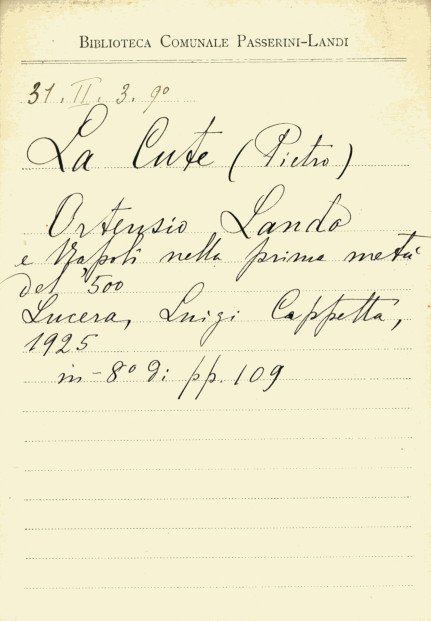 BIBLIOTECA COMUNALE PASSERINI-LANDI
31. II. 3. 9º
La Cute (Pietro)
Ortensio Lando
e Napoli nella prima metà
del '500
Lucera, Luigi Cappetta,
1925
in-8º di pp. 109